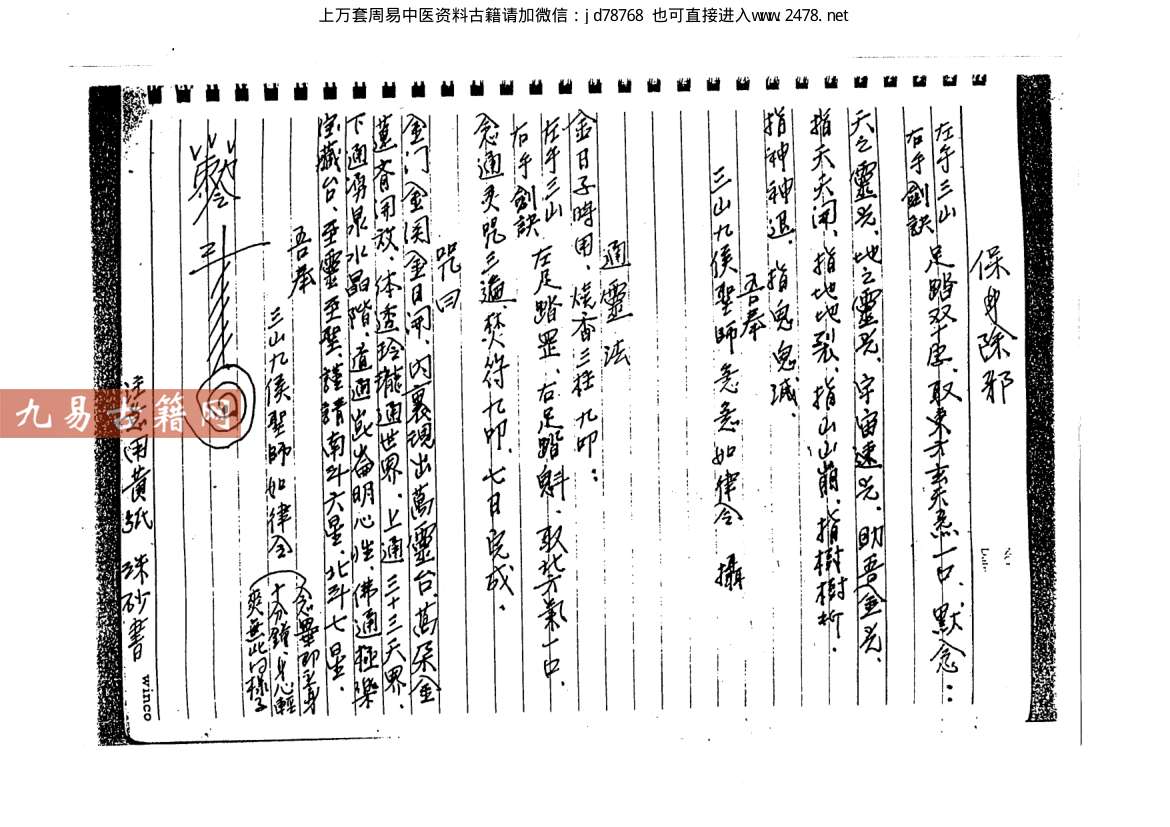 上万套周易中医资料古籍请加微信：jd78768 也可直接进入www.2478.net
保身除邪
左手三山
右手劍訣
足踏双 取東方玄天炁一口、默念：
天之靈光、地之靈光、宇宙速光、助吾金光、
指天天開、指地地裂、指山山崩、指樹樹折、
指神神退、指鬼鬼滅、
吾奉
三山九侯聖師急急如律令 攝
通靈法
金日子時用、燒香三柱九叩：
左手三山
右手劍訣
左足踏罡、右足踏魁、取北方氣一口、
念通灵咒三遍、焚符九叩、七日完成、
咒曰
金门金関金日開、内裏現出萬靈台、萬朵金
蓮齊開放、体透玲瓏通世界、上通三十三天界、
下通湧泉水晶階、道通崑崙明心性、佛通極樂
宝藏台、至靈至聖、謹請南斗六星、北斗七星、
吾奉
三山九侯聖師如律令
念畢即
十分鐘、身心輕
爽無比的樣子
用黃紙 硃砂書
winco
九易古籍网